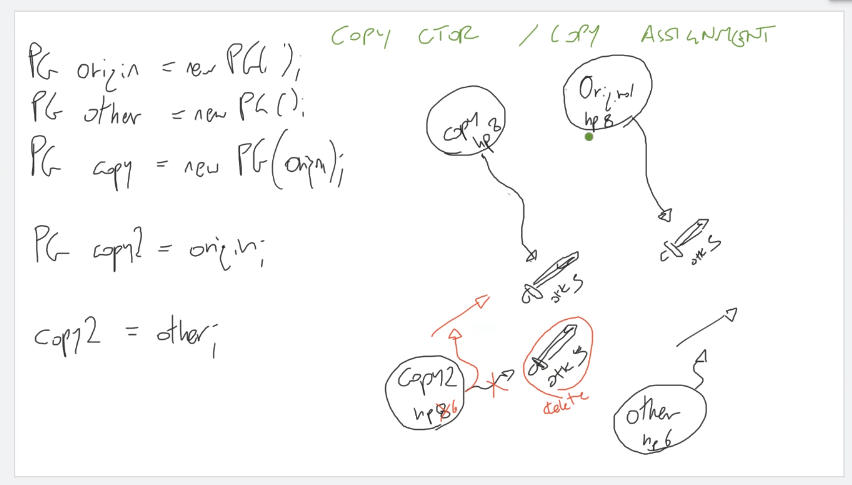 COPY CTOR / COPY ASSIGNMENT
PG origin = new PG();
PG other = new PG();
PG copy = new PG(origin);
PG copy2 = origin;
copy2 = other;
copy
hp 8
Original
hp 8
atk 5
atk 5
Copy2
hp 8 6
atk 5
delete
other
hp 6